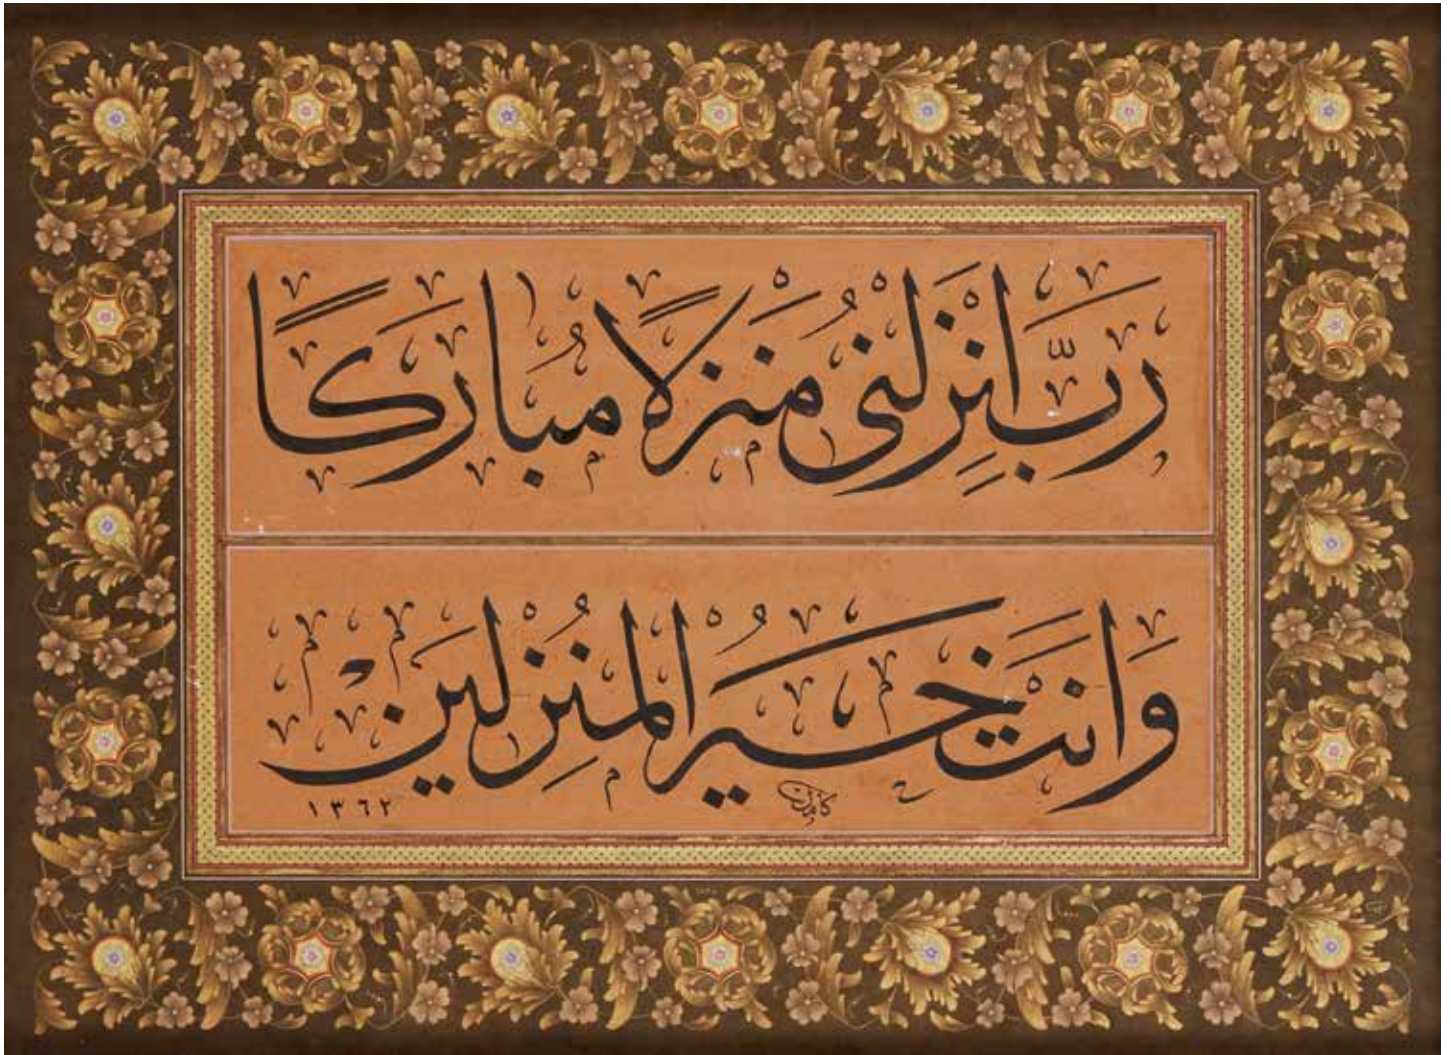 رَبِّ اَنْزِلْنِى مُنْزَلًا مُبَارَكًا
وَاَنْتَ خَيْرُ الْمُنْزِلِينَ
كامل
١٣٦٢